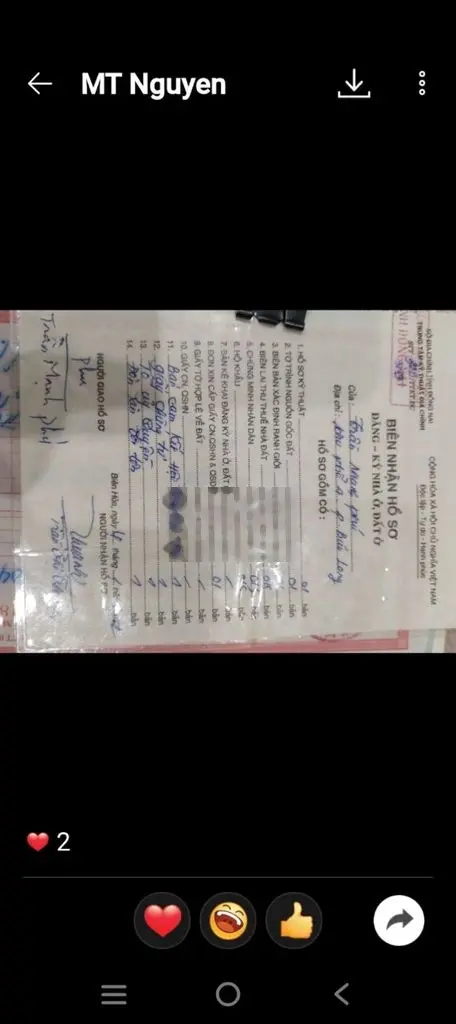 MT Nguyen
SỞ ĐỊA CHÍNH TỈNH ĐỒNG NAI
TRUNG TÂM KỸ THUẬT ĐỊA CHÍNH
CỘNG HÒA XÃ HỘI CHỦ NGHĨA VIỆT NAM
Độc lập - Tự do - Hạnh phúc
BIÊN NHẬN HỒ SƠ
ĐĂNG - KÝ NHÀ Ở, ĐẤT Ở
Của: Trần Mạnh Phú
Địa chỉ: Bửu Long
HỒ SƠ GỒM CÓ:
1. HỒ SƠ KỸ THUẬT 01 bản
2. TỜ TRÌNH NGUỒN GỐC ĐẤT 01 bản
3. BIÊN BẢN XÁC ĐỊNH RANH GIỚI bản
4. BIÊN LAI THU THUẾ NHÀ ĐẤT bản
5. CHỨNG MINH NHÂN DÂN bản
6. HỘ KHẨU bản
7. BẢN KÊ KHAI ĐĂNG KÝ NHÀ Ở, ĐẤT bản
8. ĐƠN XIN CẤP GIẤY CN QSHN & QSD 01 bản
9. GIẤY TỜ HỢP LỆ VỀ ĐẤT bản
10. GIẤY CN, QSHN bản
11. Bản cam kết 1 bản
12. giấy chứng tử 1 bản
13. Tờ ủy quyền 1 bản
14. 1 bản
Biên Hòa, ngày tháng
NGƯỜI GIAO HỒ SƠ
NGƯỜI NHẬN HỒ
Phú
Trần Mạnh Phú
2